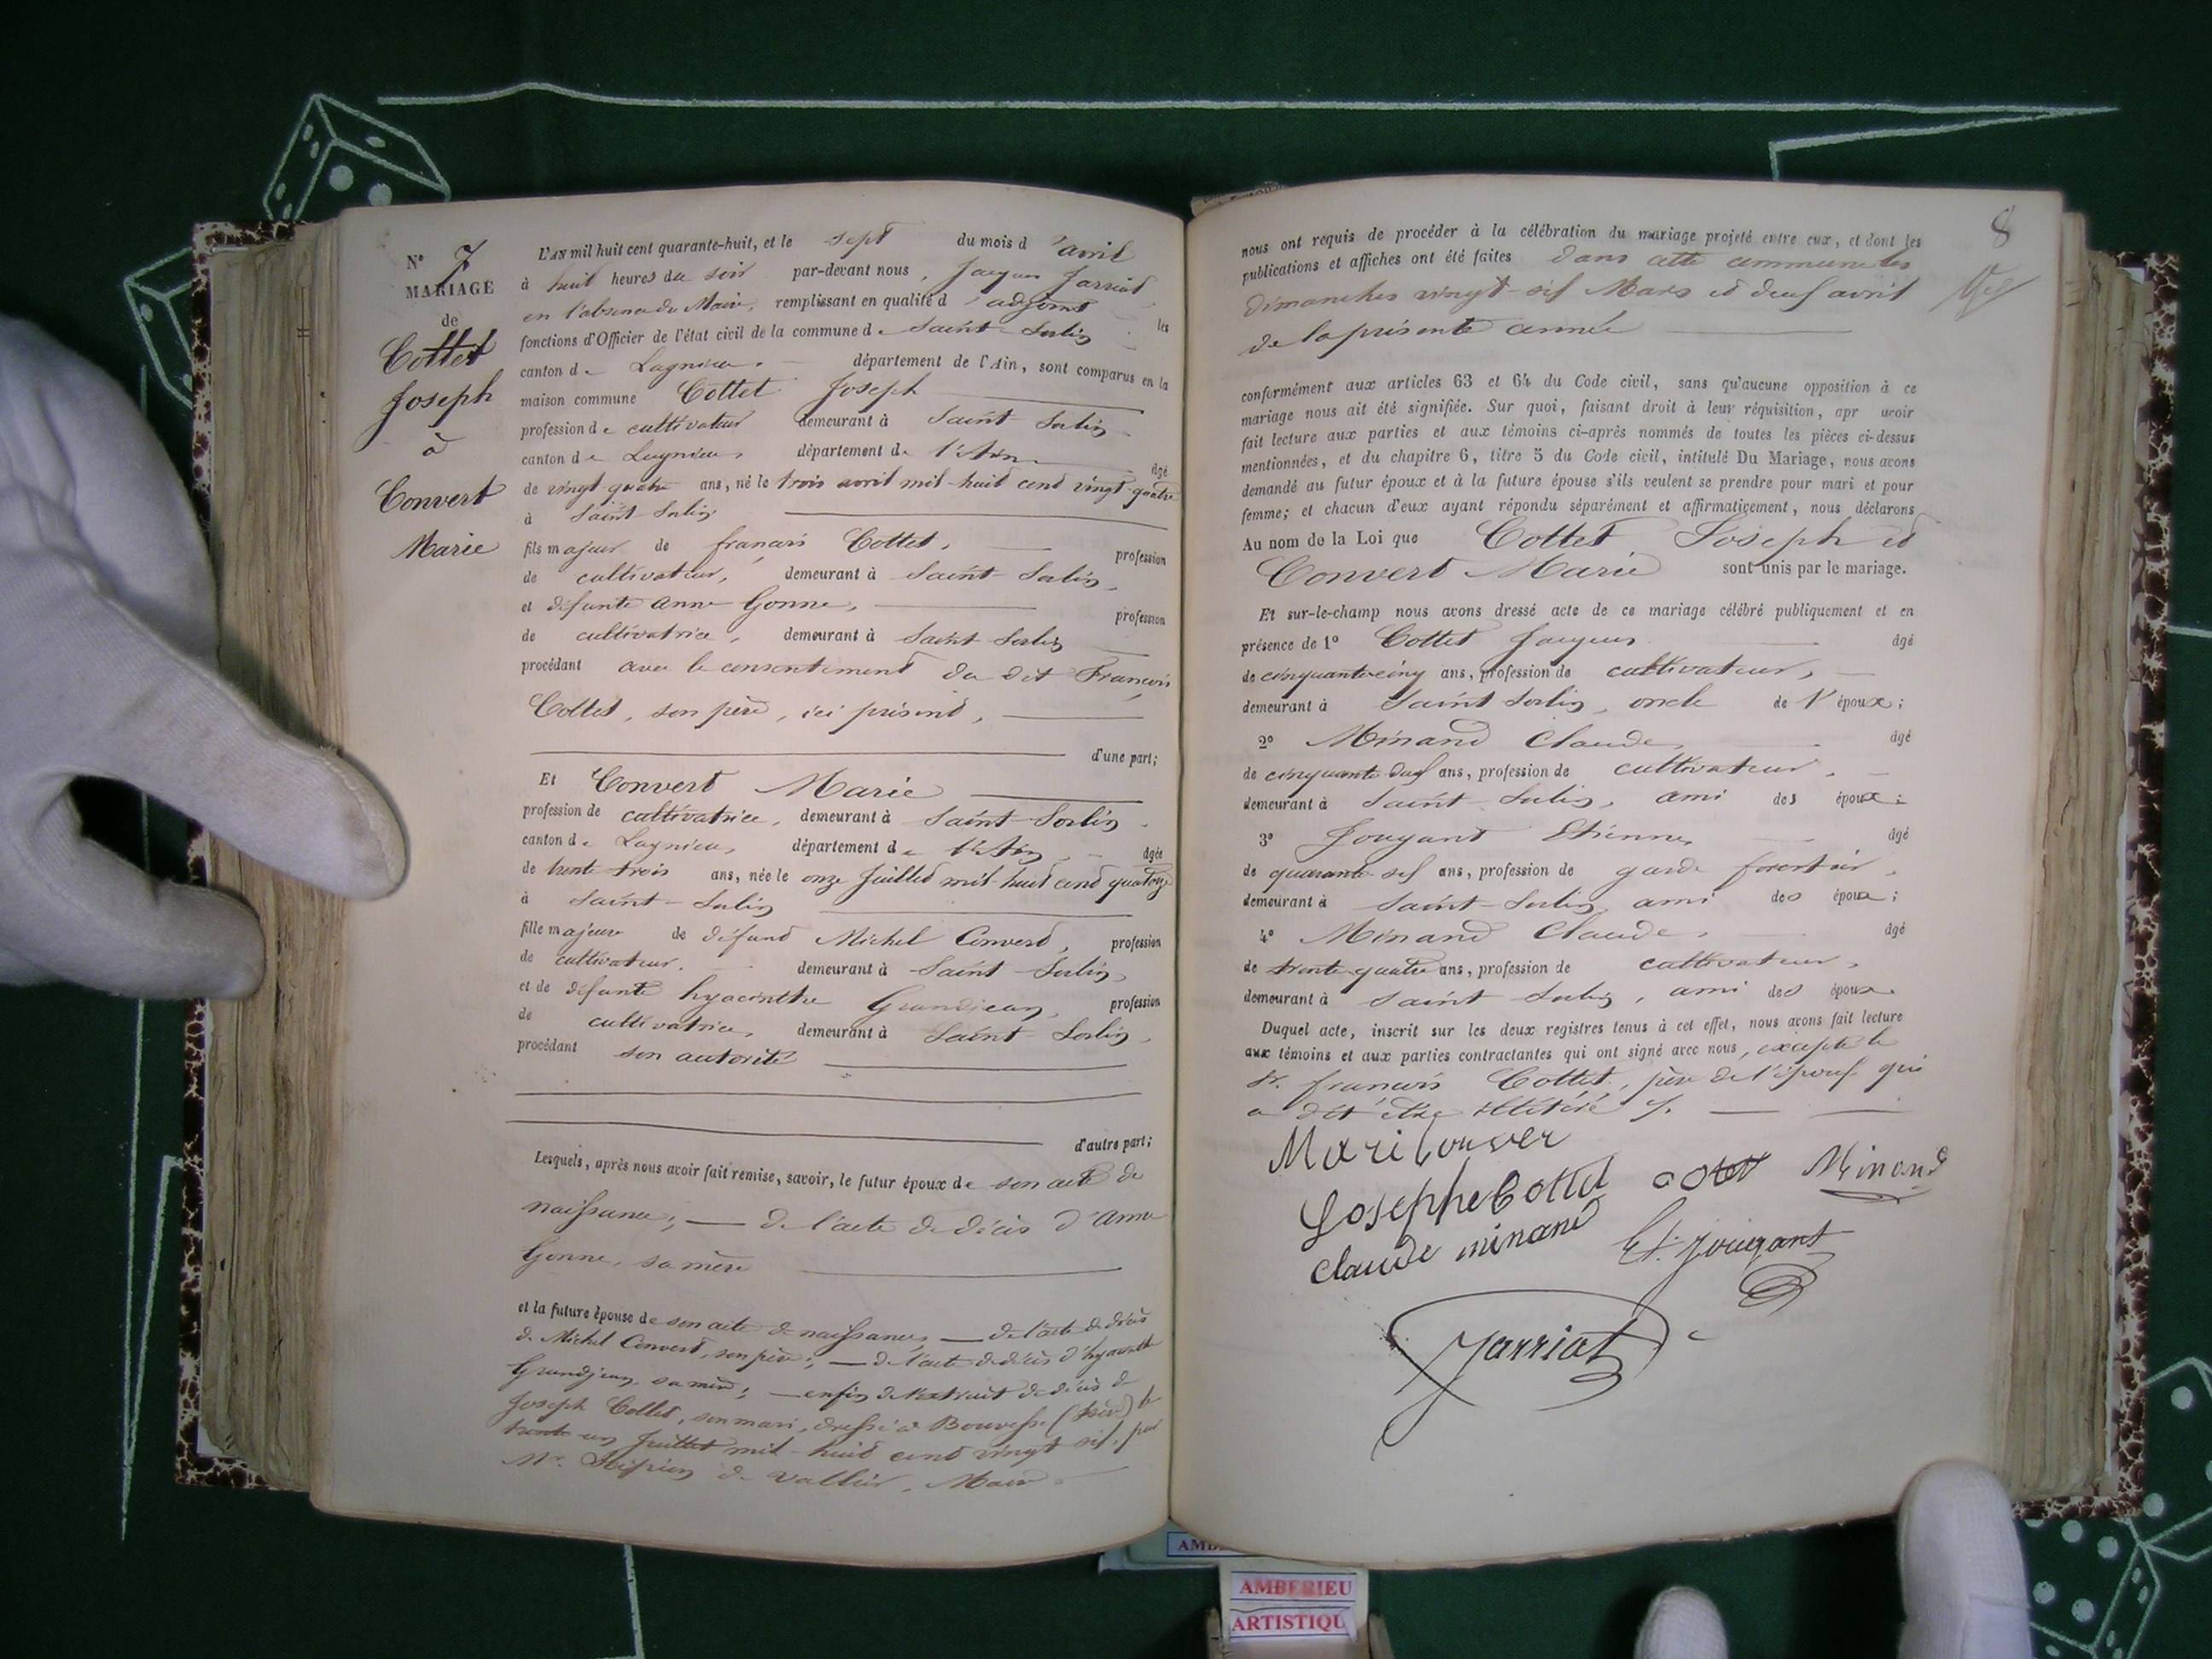 N° 7
MARIAGE
de
Cottet
Joseph
à
Convert
Marie
L'AN mil huit cent quarante-huit, et le sept du mois d'avril
à huit heures du soir par-devant nous, Jacques Jarriat
en l'absence du Maire, remplissant en qualité d'adjoint les
fonctions d'Officier de l'état civil de la commune de Saint-Sorlin
canton de Lagnieu, département de l'Ain, sont comparus en la
maison commune Cottet Joseph
profession de cultivateur demeurant à Saint Sorlin
canton de Lagnieu, département de l'Ain âgé
de vingt quatre ans, né le trois avril mil-huit cent vingt-quatre
à Saint Sorlin
fils majeur de francois Cottet, profession
de cultivateur, demeurant à Saint-Sorlin,
et défunte anne Gonne, profession
de cultivatrice, demeurant à Saint Sorlin
procédant avec le consentement du dit Francois
Cottet, son père, ici présent,
d'une part;
Et Convert Marie
profession de cultivatrice, demeurant à Saint-Sorlin,
canton de Lagnieu, département de l'Ain, âgée
de trente trois ans, née le onze Juillet mil-huit cent quatorze
à Saint-Sorlin
fille majeure de défunt Michel Convert, profession
de cultivateur, demeurant à Saint-Sorlin,
et de défunte hyacinthe Grandjean, profession
de cultivatrice, demeurant à Saint-Sorlin,
procédant son autorité
d'autre part;
Lesquels, après nous avoir fait remise, savoir, le futur époux de son acte de
naissance; — de l'acte de décès d'anne
Gonne, sa mère
et la future épouse de son acte de naissance, — de l'acte de décès
de Michel Convert, son père; — de l'acte de décès d'hyacinthe
Grandjean, sa mère; — enfin de l'extrait de décès de
Joseph Cottet, son mari, dressé à Bouvesse (Isère) le
trente un Juillet mil-huit cent vingt six, par
Mr. de Vallier, Maire
8
nous ont requis de procéder à la célébration du mariage projeté entre eux, et dont les
publications et affiches ont été faites dans cette commune les
dimanches vingt-six Mars et deux avril
de la présente année
conformément aux articles 63 et 64 du Code civil, sans qu'aucune opposition à ce
mariage nous ait été signifiée. Sur quoi, faisant droit à leur réquisition, apr avoir
fait lecture aux parties et aux témoins ci-après nommés de toutes les pièces ci-dessus
mentionnées, et du chapitre 6, titre 5 du Code civil, intitulé Du Mariage, nous avons
demandé au futur époux et à la future épouse s'ils veulent se prendre pour mari et pour
femme; et chacun d'eux ayant répondu séparément et affirmativement, nous déclarons
Au nom de la Loi que Cottet Joseph et
Convert Marie sont unis par le mariage.
Et sur-le-champ nous avons dressé acte de ce mariage célébré publiquement et en
présence de 1° Cottet Jacques âgé
de cinquante cinq ans, profession de cultivateur,
demeurant à Saint Sorlin, oncle de l'époux;
2° Minand Claude, âgé
de cinquante deux ans, profession de cultivateur,
demeurant à Saint-Sorlin, ami des époux;
3° Jouyant Etienne, âgé
de quarante-six ans, profession de garde forestier,
demeurant à Saint-Sorlin ami des époux;
4° Minand Claude, âgé
de trente-quatre ans, profession de cultivateur,
demeurant à Saint Sorlin, ami des époux
Duquel acte, inscrit sur les deux registres tenus à cet effet, nous avons fait lecture
aux témoins et aux parties contractantes qui ont signé avec nous, excepté le
Sr. francois Cottet, père de l'époux qui
a dit être illétéré
Mari Conver
Josephe Cottet cotet Minand
claude minand Et. Jouyant
Jarriat
AMBERIEU
ARTISTIQU